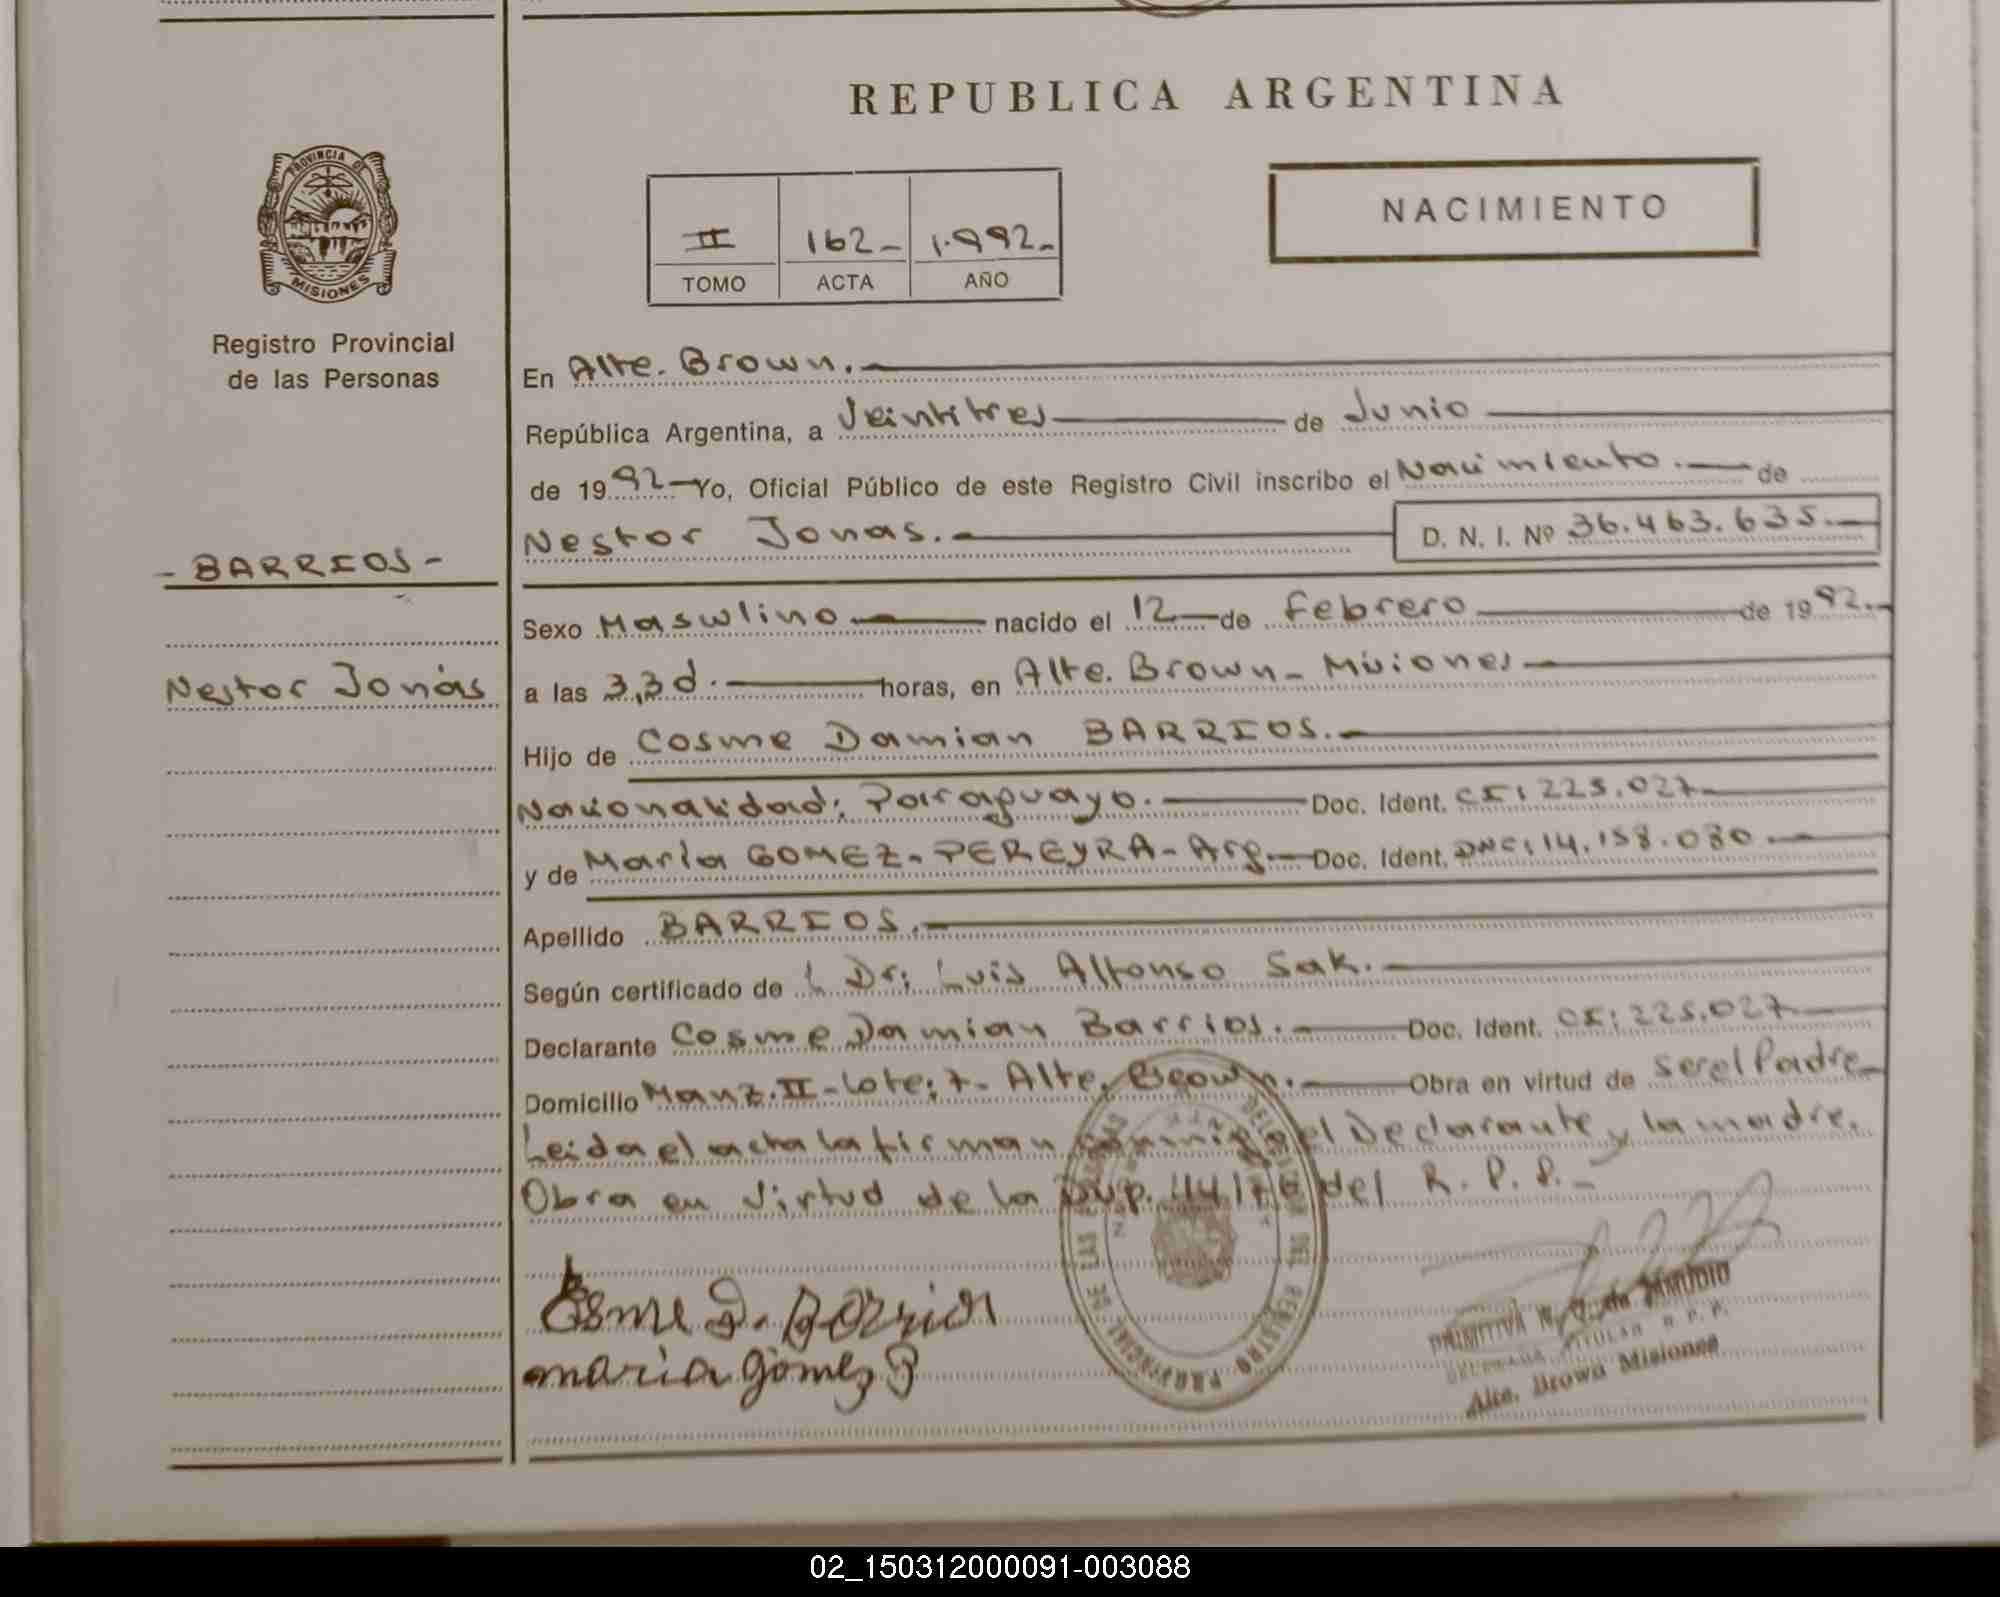 REPUBLICA ARGENTINA
PROVINCIA DE
MISIONES
Registro Provincial
de las Personas
II 162- 1.992-
TOMO ACTA AÑO
NACIMIENTO
- BARRIOS -
Nestor Jonás
En Alte. Brown.
República Argentina, a Veintitres de Junio
de 1992 Yo, Oficial Público de este Registro Civil inscribo el Nacimiento. de
Nestor Jonas. D. N. I. Nº 36.463.635.
Sexo Masculino nacido el 12 de Febrero de 1992.
a las 3,30. horas, en Alte. Brown - Misiones
Hijo de Cosme Damian BARRIOS.
Nacionalidad: Paraguayo. Doc. Ident. CI: 225.027
y de Maria GOMEZ - PEREYRA - Arg. Doc. Ident. DNI: 14.158.080.
Apellido BARRIOS.
Según certificado de Dr: Luis Alfonso Sak.
Declarante Cosme Damian Barrios. Doc. Ident. CI: 225.027
Domicilio Manz. II - Lote: 7 - Alte. Brown. Obra en virtud de ser el Padre
Leida el acta la firman conmigo el Declarante y la madre.
Obra en Virtud de la Disp. 14/76 del R. P. P. -
Cosme D. Barrios
maria Gomez P
REGISTRO PROVINCIAL DE LAS PERSONAS
PRIMITIVA N. de ZAMUDIO
DELEGADA TITULAR R. P. P.
Alte. Brown Misiones
02_150312000091-003088